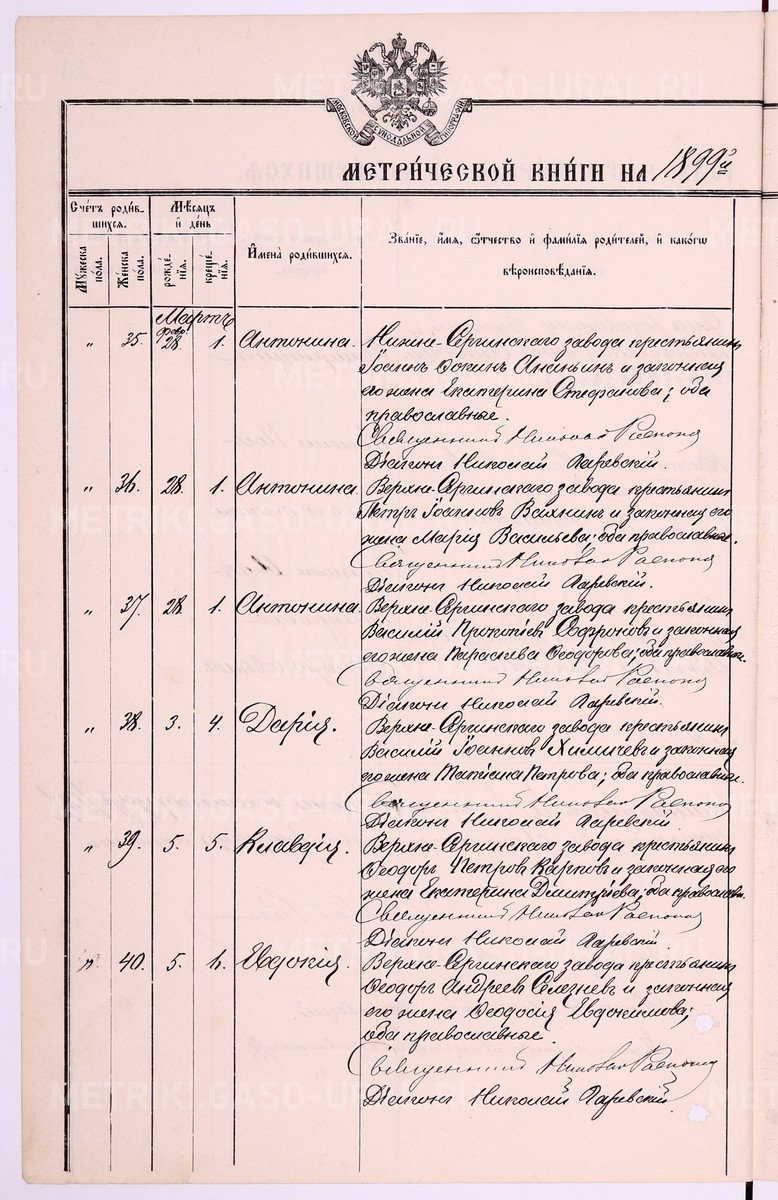 МОСКОВСКОЙ СѴНОДАЛЬНОЙ ТИПОГРАФІИ
МЕТРИ́ЧЕСКОЙ КНИ́ГИ НА 1899й
Сче́тъ роди́вшихсѧ.
Мѣ́сѧцъ и҆ де́нь
И҆мена̀ роди́вшихсѧ.
Зва́нїе, и҆́мѧ, ѻ҆́тчество и҆ фами́лїѧ роди́телей, и҆ како́гѡ вѣроисповѣ́данїѧ.
Мꙋ́жеска по́ла.
Же́нска по́ла.
рожде́нїѧ.
креще́нїѧ.
Мартъ
февр.
" 35. 28 1. Антонина. Нижне-Сергинскаго завода крестьянинъ
Іоаннъ Ананьинъ и законная
его жена Екатерина Стефанова; оба
православные.
Священникъ Николай
Діаконъ Николай
" 36. 28. 1. Антонина. Верхне-Сергинскаго завода крестьянинъ
Петръ Іоанновъ и законная его
жена Марія Васильева; оба православные.
Священникъ Николай
Діаконъ Николай
" 37. 28 1. Антонина. Верхне-Сергинскаго завода крестьянинъ
Василій Прокопіевъ Софроновъ и законная
его жена Параскева Ѳеодорова; оба православные.
Священникъ Николай
Діаконъ Николай
" 38. 3. 4. Дарія. Верхне-Сергинскаго завода крестьянинъ
Василій Іоанновъ Химичевъ и законная
его жена Татіана Петрова; оба православные.
Священникъ Николай
Діаконъ Николай
" 39. 5. 5. Клавдія. Верхне-Сергинскаго завода крестьянинъ
Ѳеодоръ Петровъ Карповъ и законная его
жена Екатерина Димитріева; оба православн.
Священникъ Николай
Діаконъ Николай
" 40. 5. 6. Евдокія. Верхне-Сергинскаго завода крестьянинъ
Ѳеодоръ Андреевъ Селезневъ и законная
его жена Ѳеодосія Евдокимова;
оба православные.
Священникъ Николай
Діаконъ Николай
METRIKI.GASO-URAL.RU